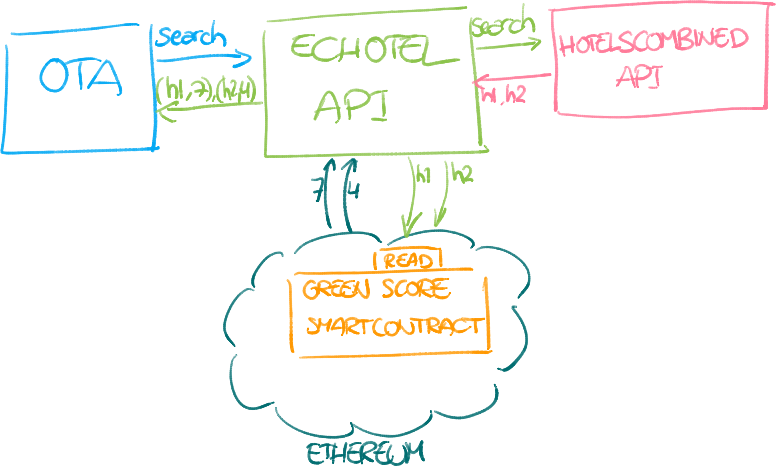 search
OTA
(h1,7),(h2,4)
ECHOTEL
API
search
h1,h2
HOTELSCOMBINED
API
7
4
h1
h2
READ
GREEN SCORE
SMARTCONTRACT
ETHEREUM